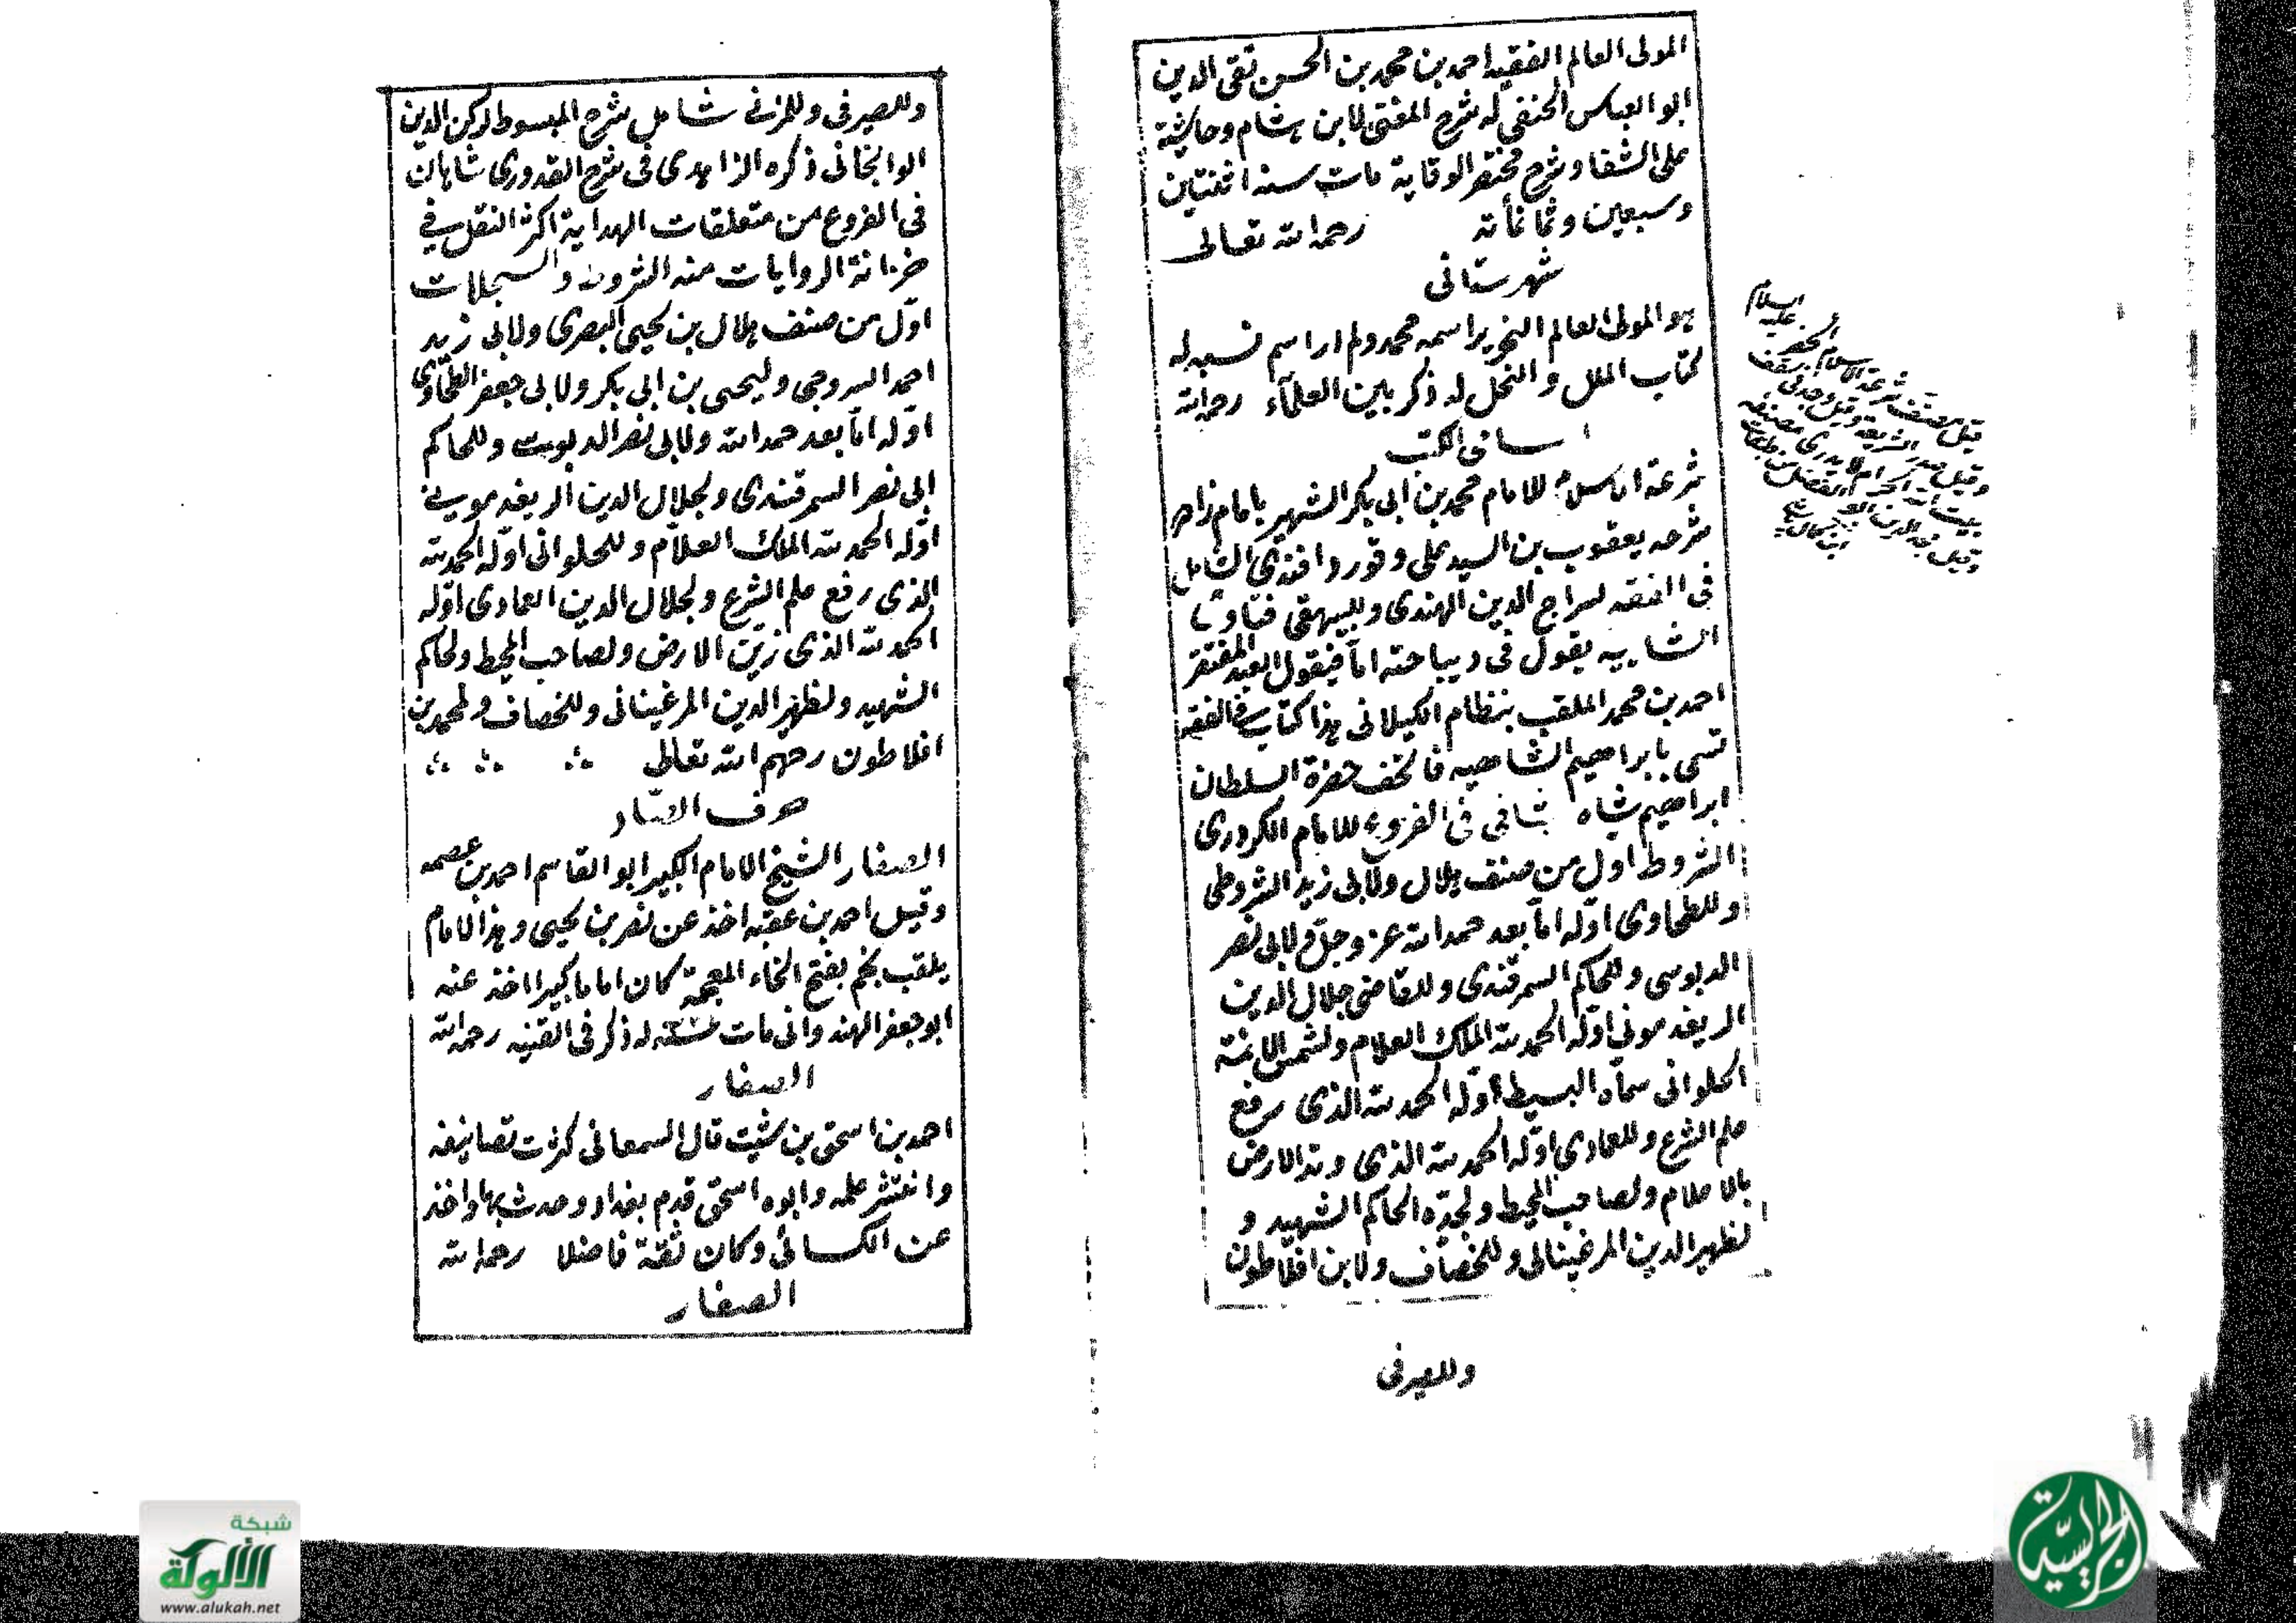 المولى العالم الفقيه احمد بن محمد بن الحسن تقى الدين
ابو العباس الحنفي له شرح المغنى لابن هشام وحاشية
على الشفا وشرح مختصر الوقاية مات سنه اثنتين
وسبعين وثمانمأئة رحمه الله تعالى
شهرستانى
هو المولى العالم النحرير اسمه محمد ولم ار اسم نسبه له
كتاب الملل والنحل له ذكر بين العلمآء رحمه الله
اسامى الكتب
شرعة الاسلام للامام محمد بن ابى بكر الشهير بامام زاده
شرحه يعقوب بن السيد على وقورد افندي الشامل
فى الفقه لسراج الدين الهندى وللبيهقى فتاوى
الشاهيه يقول فى ديباجته اماّ فيقول العبد المفتقر
احمد بن محمد الملقب بنظام الكيلانى هذا كتاب فى الفقه
تسمى بابراهيم الشاهيه فاتحف حضرة السلطان
ابراهيم شاه شافى فى الفروع للامام الكردرى
الشروط اول من صنف هلال ولابى زيد الشروطى
وللطحاوى اوّله اماّ بعد حمد الله عز وجلّ ولابى نصر
الدبوسى وللحاكم السمرقندى وللقاضى جلال الدين
الريغدمونى اوّله الحمد لله الملك العلام ولشمس الائمة
الحلوانى سماّه البسيط اوّله الحمد لله الذى رفع
علم الشرع وللعمادى اوّله الحمد لله الذى وتد الارض
بالاعلام ولصاحب المحيط ولجدّه الحاكم الشهيد و
لظهير الدين المرغينانى وللخصاف ولابن افلاطون
وللصيرفى
قيل مصنف شرعة الاسلام الخضر عليه السلام
وقيل صدر الشريعة وقيل وجد فى سقف
بيت الله الحرام لا يدرى مصنفه
وللصيرفى وللمزنى شامل شرح المبسوط لركن الدين
الوالجانى ذكره الزاهدى فى شرح القدورى شاهان
فى الفروع من متعلقات الهداية اكثر النقل في
خزانة الروايات منه الشروط والسجلات
اوّل من صنف هلال بن يحيى البصرى ولابى زيد
احمد السروجى وليحيى بن ابى بكر ولابى جعفر الطحاوى
اوّله اماّ بعد حمد الله ولابى نصر الدبوسى وللحاكم
ابى نصر السمرقندى ولجلال الدين الريغدمونى
اوّله الحمد لله الملك العلاّم وللحلوانى اوّله الحمد لله
الذى رفع علم الشرع ولجلال الدين العمادى اوّله
الحمد لله الذى زيّن الارض ولصاحب المحيط ولحاكم
الشهيد ولظهير الدين المرغينانى وللخصاف ولمحمد بن
افلاطون رحهم الله تعالى
حرف الصّاد
الصفار الشيخ الامام الكبير ابو القاسم احمد بن عصمه
وقيل احمد بن عقبه اخذ عن نصر بن يحيى وهذا الامام
يلقب بخم بفتح الخاء المعجمة كان اماما كبيرا اخذ عنه
ابو جعفر الهندوانى مات سنه له ذكر فى القنيه رحمه الله
الصفار
احمد بن اسحق بن شيت قال السمعانى كثرت تصانيفه
وانتشر علمه وابوه اسحق قدم بغداد وحدث بها واخذ
عن الكسائى وكان ثقة فاضلا رحمه الله
الصفار
شبكة
الألوكة
www.alukah.net